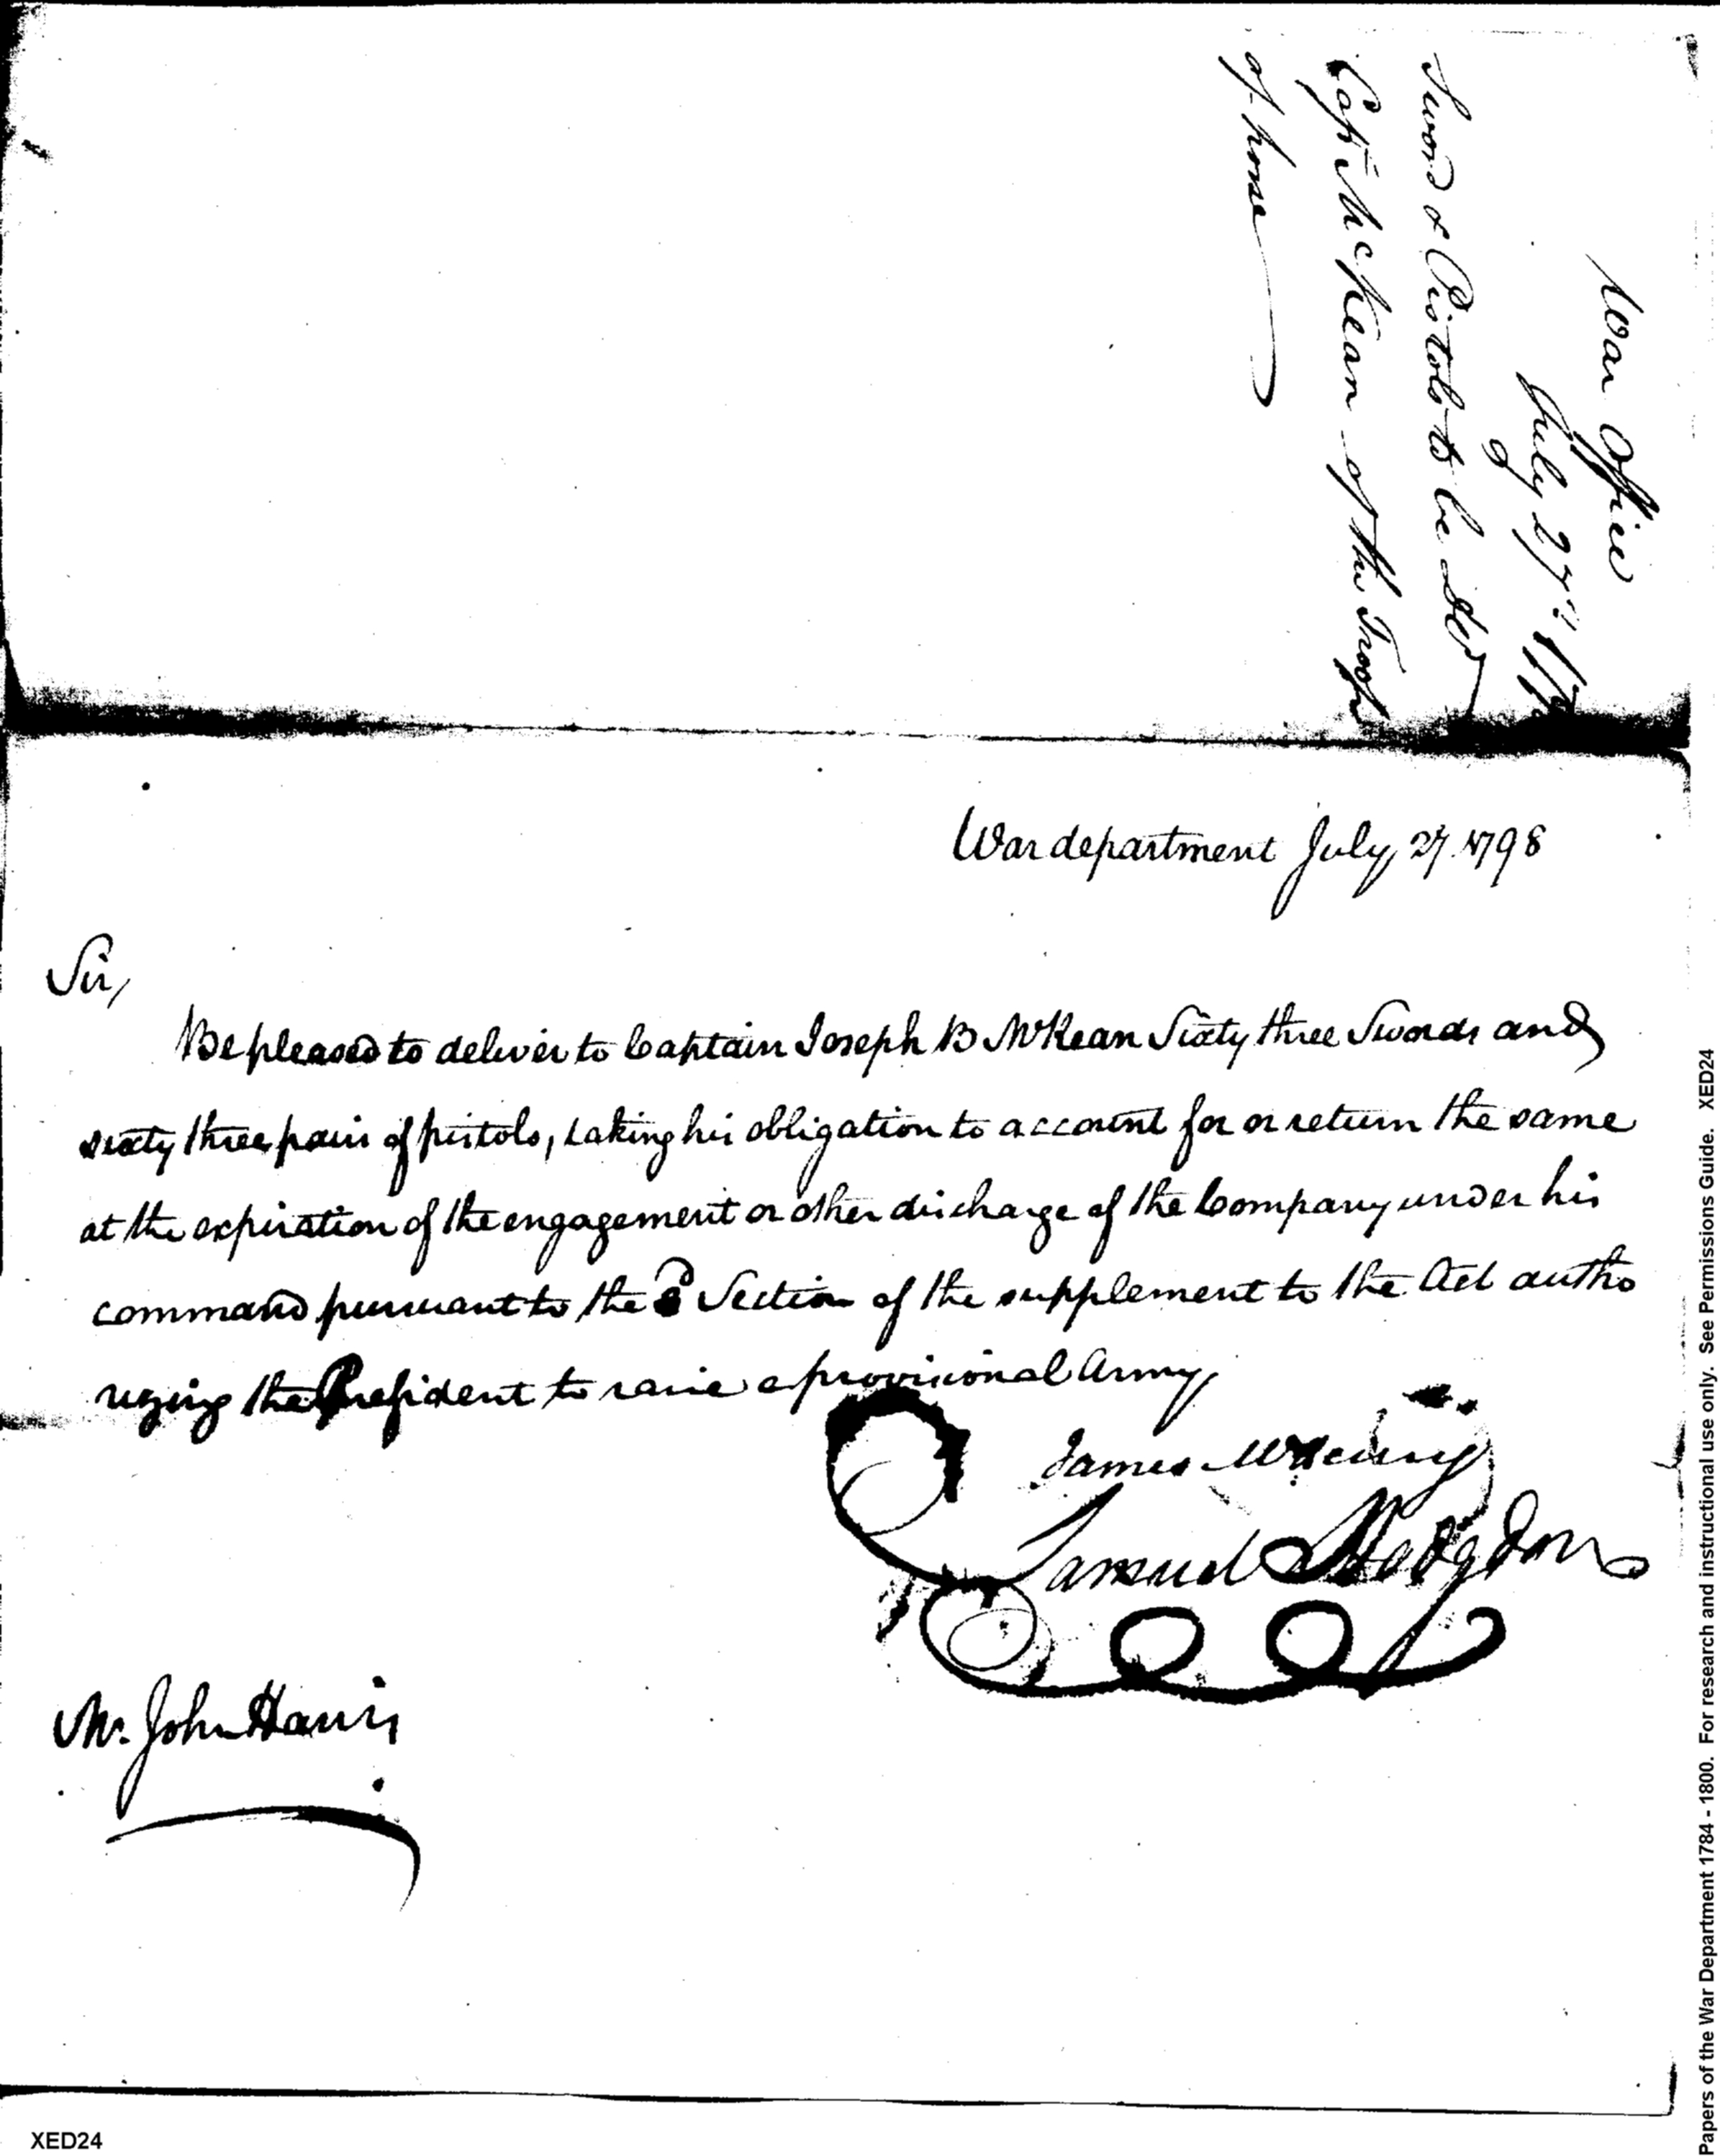 War Office
July 27th 1798
Sword & Pistols to be
Capt McKean of the Troop
of horse
War department July 27. 1798
Sir,
Be pleased to deliver to Captain Joseph B McKean Sixty three Swords and
sixty three pair of pistols, taking his obligation to account for or return the same
at the expiration of the engagement or other discharge of the Company under his
command pursuant to the 3d Section of the supplement to the Act autho
rizing the President to raise a provisional Army
James McHenry
Samuel Hodgdon
Mr. John Harris
Papers of the War Department 1784 - 1800. For research and instructional use only. See Permissions Guide. XED24
XED24